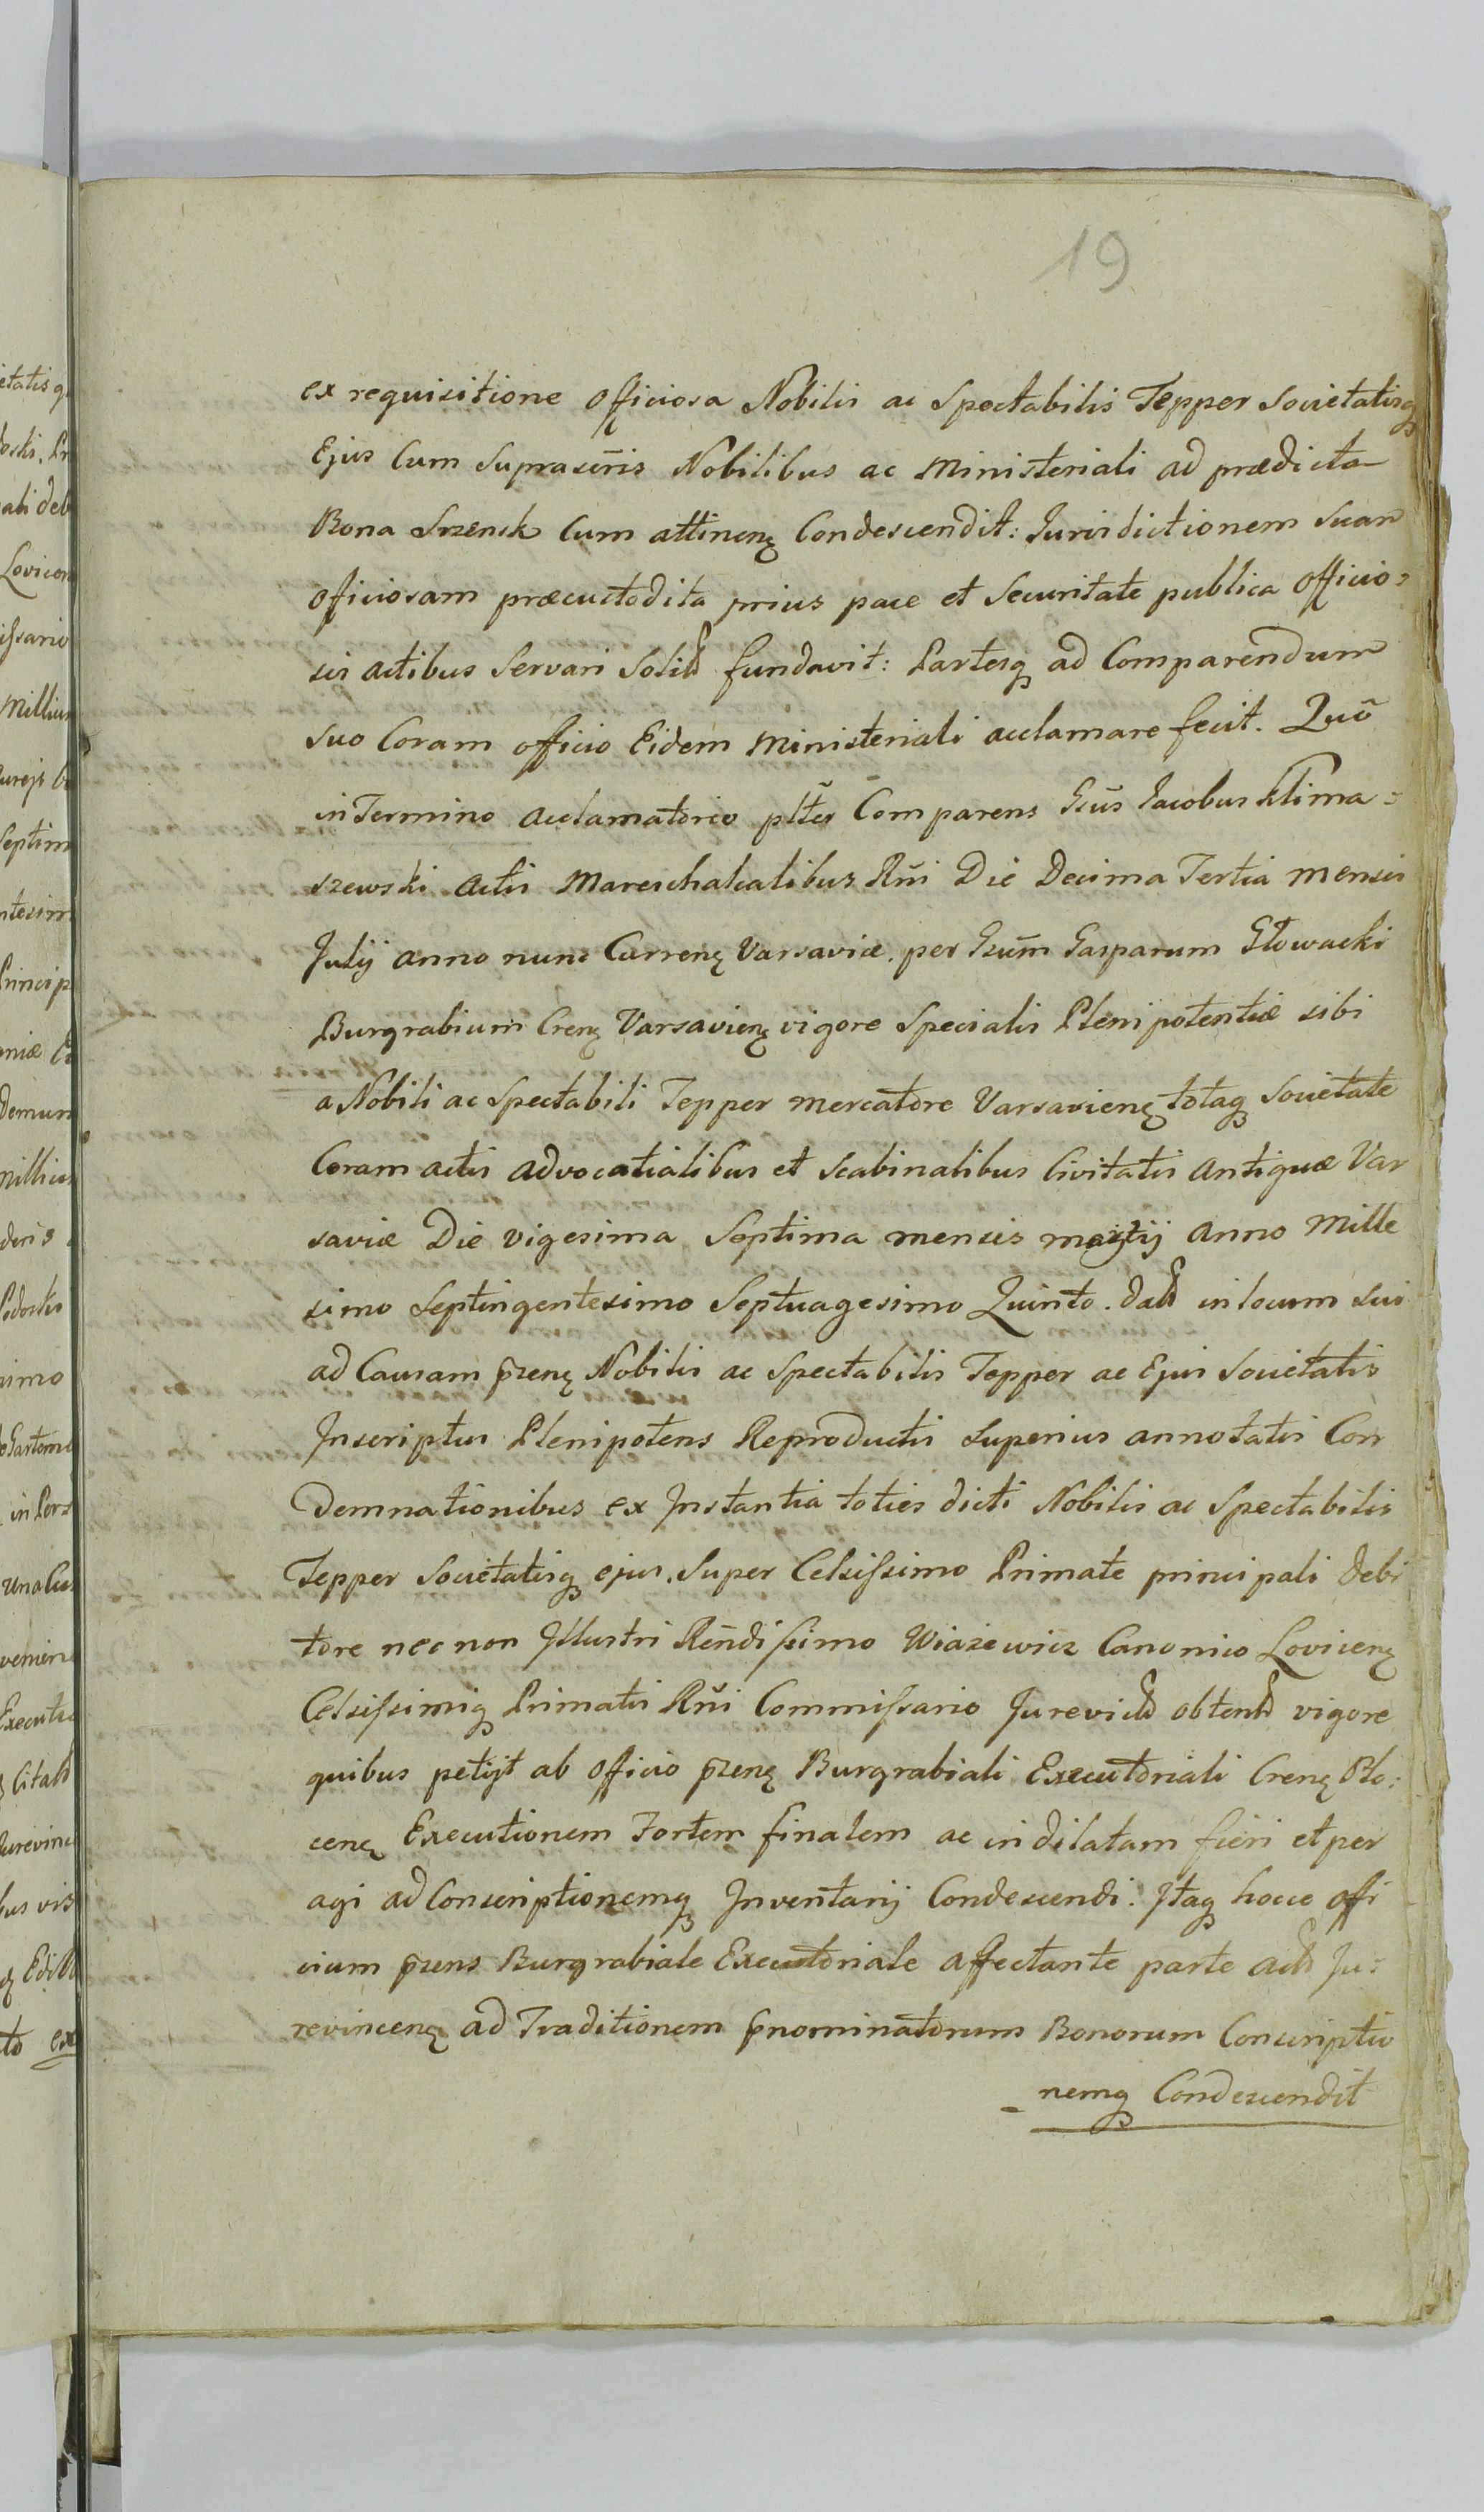 19
ex requisitione officiosa Nobilis ac Spectabilis Tepper Societatisq́ꝫ
Ejus Cum Suprascris̃ Nobilibus ac Ministeriali ad prædicta
Bona Srzensk Cum attinenꝫ Condescendit: Jurisdictionem Suam
Officiosam præcustodita prius pace et Securitate publica officio=
sis actibus Servari Solitt fundavit: Partesqꝫ ad Comparendum
suo Coram officio Eidem Ministeriali acclamare fecit. Quō
in Termino acclamatorio pltẽr Comparens Gsũs Jacobus Klima=
szewski Actis Mareschalcalibus Rñi Die Decima Tertia mensis
Julij anno nunc Currenꝫ Varsaviæ. per Gsũm Gasparum Głowacki
Burgrabium Crenꝫ Varsavienꝫ vigore Specialis Plenipotentiæ sibi
a Nobili ac Spectabili Tepper mercatore Varsavienꝫ totaqꝫ Societate
Coram actis advocatialibus et Scabinalibus Civitatis Antiquæ Var
saviæ Die vigesima Septima mensis martij anno Mille
simo Septingentesimo Septuagesimo Quinto. datt in locum sui
ad Causam p̃zenꝫ Nobilis ac Spectabilis Tepper ac Ejus Societatis
Inscriptus Plenipotens Reproductis Superius annotatis Con
demnationibus ex Instantia toties dicti Nobilis ac Spectabilis
Tepper Societatisqꝫ ejus. Super Celsissimo Primate principali debi
tore nec non Jllustri Rñdissimo Wiażewicz Canonico Lovicenꝫ
Celsissimiqꝫ Primatis Rñi Commissario Jurevictt obtentt vigore
quibus petijt ab Officio p̃zenꝫ Burgrabiali Executoriali Crenꝫ Plo:
cenꝫ Executionem Fortem finalem ac indilatam fieri et per
agi ad Conscriptionemqꝫ Inventarij Condescendi. Jtaqꝫ hocce offi
cium p̃zens Burgrabiale Executoriale affectante parte actt Ju:
revincenꝫ ad Traditionem p̃nominatorum Bonorum Conscriptio
nemqꝫ Condescendit